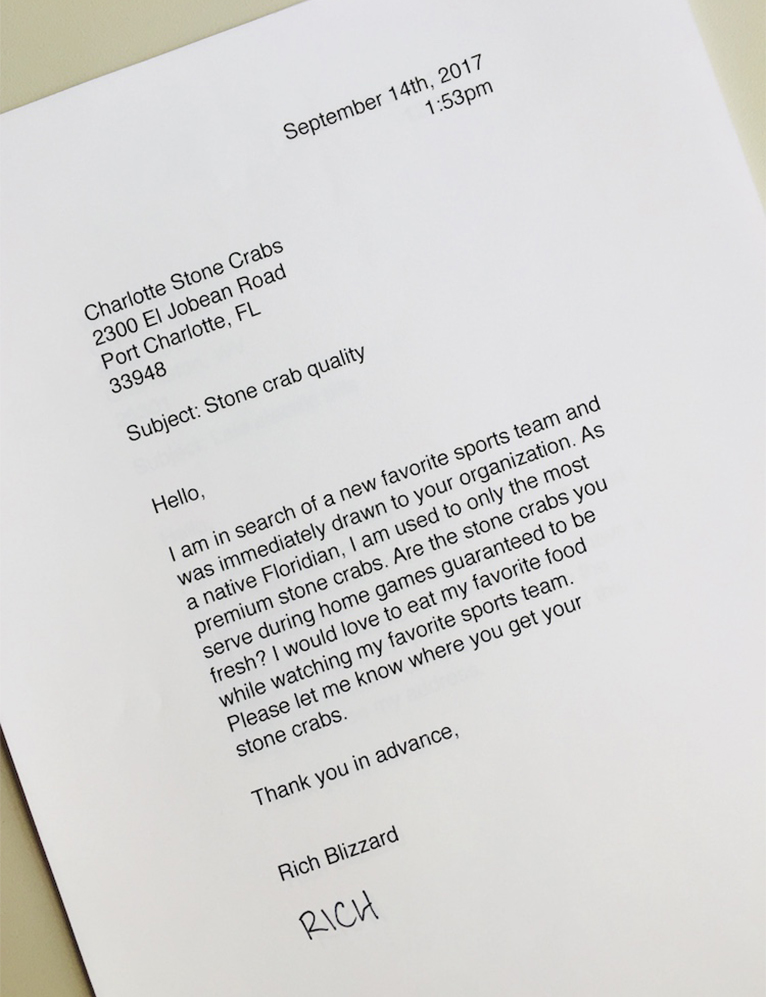 September 14th, 2017
1:53pm
Charlotte Stone Crabs
2300 El Jobean Road
Port Charlotte, FL
33948
Subject: Stone crab quality
Hello,
I am in search of a new favorite sports team and
was immediately drawn to your organization. As
a native Floridian, I am used to only the most
premium stone crabs. Are the stone crabs you
serve during home games guaranteed to be
fresh? I would love to eat my favorite food
while watching my favorite sports team.
Please let me know where you get your
stone crabs.
Thank you in advance,
Rich Blizzard
RICH